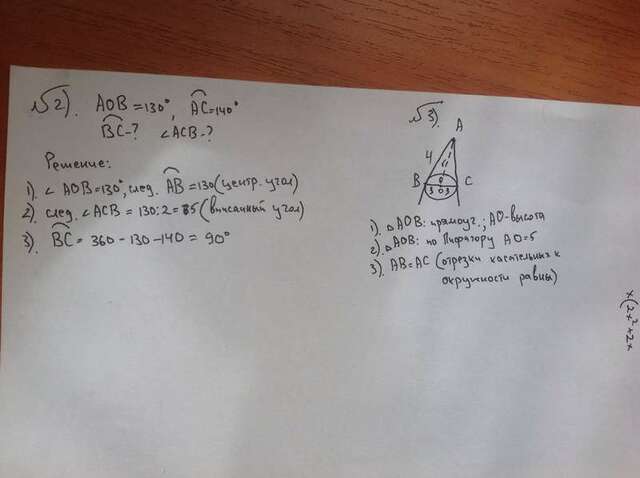 √2). AOB = 130°, AC = 140°
BC - ? ∠ACB - ?
Решение:
1). ∠ AOB = 130°, след. AB = 130 (центр. угол)
2). след. ∠ACB = 130:2 = 65 (вписанный угол)
3). BC = 360 - 130 - 140 = 90°
√3).
A
4
B
C
0
3 0 3
1). △AOB: прямоуг.; AO - высота
2). △AOB: по Пифагору AO = 5
3). AB = AC (отрезки касательных к
окружности равны)
x(2x²+2x